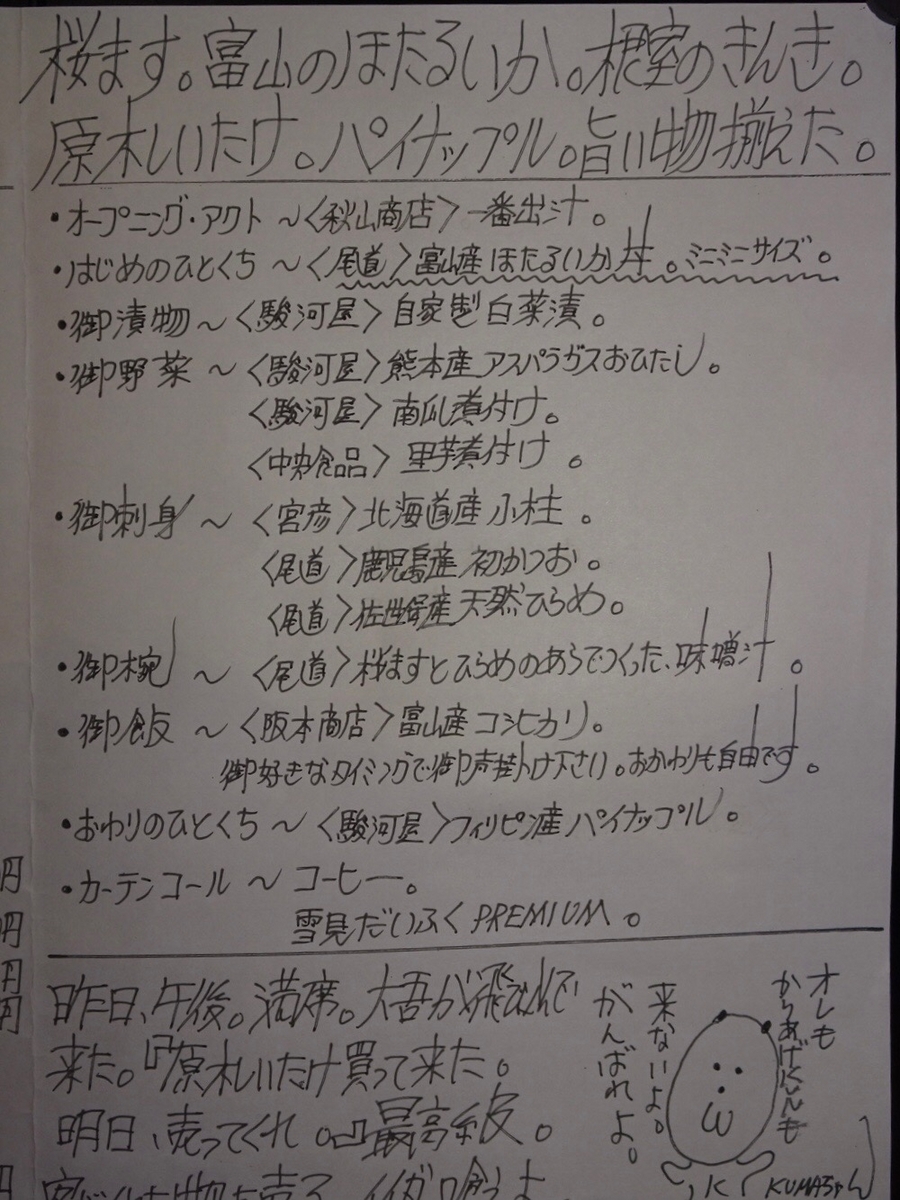 桜ます。富山のほたるいか。根室のきんき。
原木しいたけ。パイナップル。旨い物揃えた。
・オープニング・アクト～〈秋山商店〉一番出汁。
・はじめのひとくち～〈尾道〉富山産ほたるいか丼。ミニミニサイズ。
・御漬物～〈駿河屋〉自家製白菜漬。
・御野菜～〈駿河屋〉熊本産アスパラガスおひたし。
〈駿河屋〉南瓜煮付け。
〈中央食品〉里芋煮付け。
・御刺身～〈宮彦〉北海道産小柱。
〈尾道〉鹿児島産初かつお。
〈尾道〉佐世保産天然ひらめ。
・御椀～〈尾道〉桜ますとひらめのあらでつくった、味噌汁。
・御飯～〈阪本商店〉富山産コシヒカリ。
御好きなタイミングで御声掛け下さい。おかわりも自由です。
・おわりのひとくち～〈駿河屋〉フィリピン産パイナップル。
・カーテンコール～コーヒー。
雪見だいふくPREMIUM。
昨日、午後。満席。大吾が飛び込んで
来た。『原木しいたけ買って来た。
明日、売ってくれ。』最高級。
オレも
からあげくんも
来ないよ。
がんばれよ。
KUMAちゃん
円
円
円
円
円